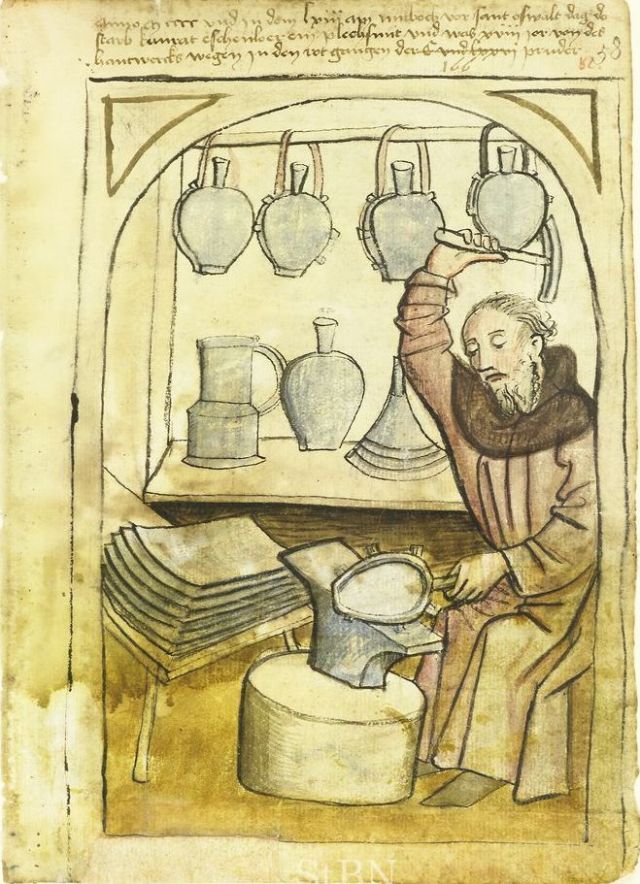 Anno m cccc und in dem lxiii am mitboch vor sant oswalt dag do
starb kunrat eschenloer ein plechsmit und was xviii jor von des
hantwercks wegen in den rot gangen der C und lxxxvi pruder
166
82
58
StBN